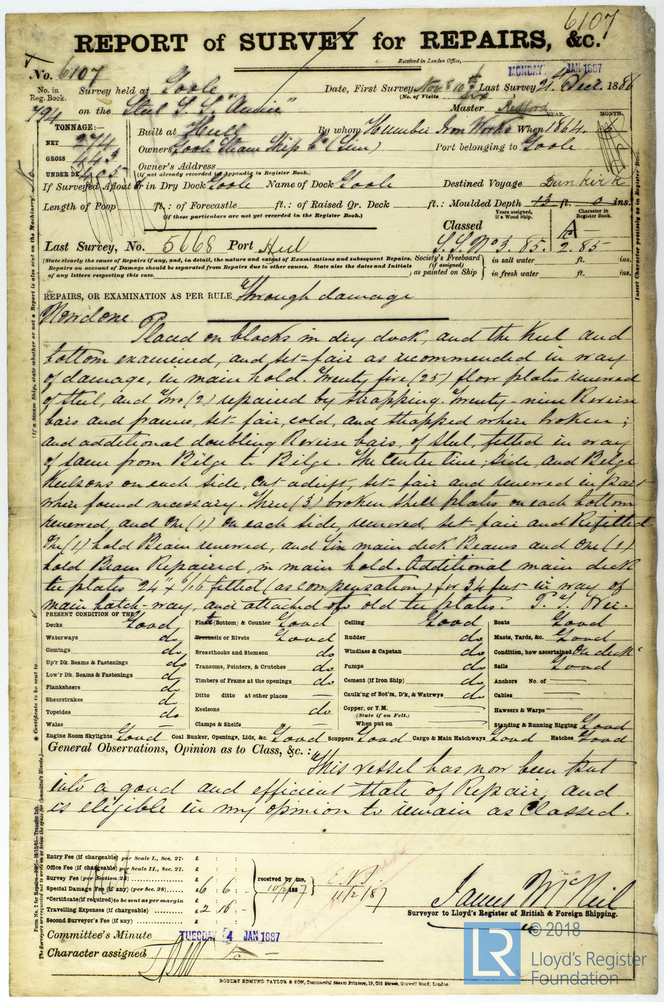 6107
REPORT of SURVEY for REPAIRS, &c.
Received in London Office,
MONDAY JAN 1887
No. 6107
No. in Reg. Book. Survey held at Goole Date, First Survey Nov 10th Last Survey 21 Decr. 1886
(No. of Visits
794 on the Steel S. S. "Annie" Master
TONNAGE:— Built at Hull By whom Humber Iron Works When 1864. 6
YEAR. MONTH.
NET 274
GROSS 443
UNDER DK 405
Owners Goole Steam Ship Co (Lim) Port belonging to Goole
Owner's Address
(If not already recorded in Appendix to Register Book.)
If Surveyed Afloat or in Dry Dock Goole Name of Dock Goole Destined Voyage Dunkirk
Length of Poop ft.: of Forecastle ft.: of Raised Qr. Deck ft.: Moulded Depth 13 ft. 0 ins.
(If these particulars are not yet recorded in the Register Book.)
Classed
Years assigned, if a Wood Ship.
Character in Register Book.
Last Survey, No. 5668 Port Hull S.S. No 3. 85. 2.85
(State clearly the cause of Repairs if any, and, in detail, the nature and extent of Examinations and subsequent Repairs.
Repairs on account of Damage should be separated from Repairs due to other causes. State also the dates and Initials
of any letters respecting this case.
Society's Freeboard (if assigned) as painted on Ship in salt water ft. ins.
in fresh water ft. ins.
REPAIRS, OR EXAMINATION AS PER RULE Through damage
Now done Placed on blocks in dry dock, and the keel and
bottom examined, and set-fair as recommended in way
of damage, in main hold. Twenty five (25) floor plates renewed
of steel, and two (2) repaired by strapping. Twenty-nine Reverse
bars and frames, set-fair, cold, and strapped where broken;
and additional doubling Reverse bars, of steel, fitted in way
of same from Bilge to Bilge. The Center line, side, and Bilge
keelsons on each side, cut adrift, set-fair and renewed in part
where found necessary. Three (3) broken shell plates on each bottom
renewed, and one (1) on each side, removed, set-fair and Refitted
One (1) hold Beam renewed, and six main deck Beams and one (1)
hold Beam Repaired, in main hold. Additional main deck
tie plates 24" x 6/16 fitted (as compensation) for 34 feet in way of
main hatch-way, and attached to old tie plates.
PRESENT CONDITION OF THE
Decks Good
Waterways do
Comings do
Up'r Dk. Beams & Fastenings do
Low'r Dk. Beams & Fastenings do
Planksheers do
Sheerstrakes do
Topsides do
Wales
Plank (Bottom) & Counter Good
Treenails or Rivets Good
Breasthooks and Stemson do
Transoms, Pointers, & Crutches do
Timbers of Frame at the openings do
Ditto ditto at other places —
Keelsons do
Clamps & Shelfs
Ceiling Good
Rudder do
Windlass & Capstan do
Pumps do
Cement (if Iron Ship) do
Caulk'ng of Bot'm, D'k, & Watrwys do
Copper, or Y.M.
(State if on Felt.)
When put on
Boats Good
Masts, Yards, &c. Good
Condition, how ascertained On deck
Sails Good
Anchors No. of —
Cables
Hawsers & Warps
Standing & Running Rigging Good
Engine Room Skylights Good Coal Bunker, Openings, Lids, &c. Good Scuppers Good Cargo & Main Hatchways Good Hatches Good
General Observations, Opinion as to Class, &c.:
This vessel has now been put
into a good and efficient state of Repair, and
is eligible in my opinion to remain as Classed.
Entry Fee (if chargeable) per Scale I., Sec. 27. £
Office Fee (if chargeable) per Scale II., Sec. 27. £
Survey Fee (per Section 28) £
Special Damage Fee (if any) (per Sec. 28) £ 6 : 6 : —
*Certificate (if required) to be sent as per margin
Travelling Expenses (if chargeable) £ 2 16 —
Second Surveyor's Fee (if any) £
received by me, 10/2/1887
11/2/87
James McNeil
Surveyor to Lloyd's Register of British & Foreign Shipping.
Committee's Minute TUESDAY 4 JAN 1887
Character assigned
ROBERT EDMUND TAYLOR & SON, Commercial Steam Printers, 19, Old Street, Goswell Road, London.
LR
© 2018
Lloyd's Register
Foundation